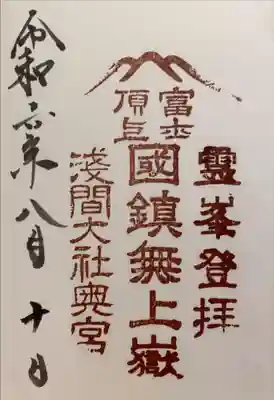 霊峯登拝
富士
頂上
國鎮無上嶽
淺間大社奥宮
令和六年八月十日